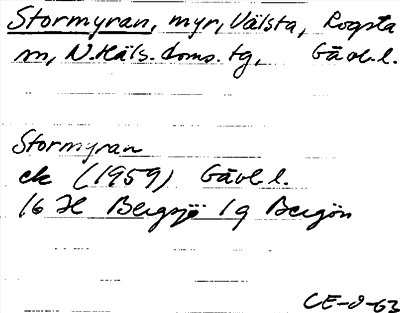 Stormyran, myr, Välsta, Rogsta
sn, N. Häls. doms. tg, Gävl. l.
Stormyran
ek (1959) Gävl l.
16 H Bergsjö 1g Bergön
CE-8-63